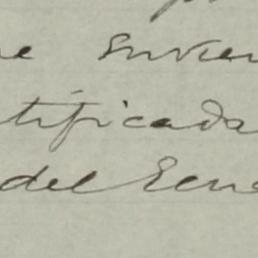 e envien
tificada
del Ecua